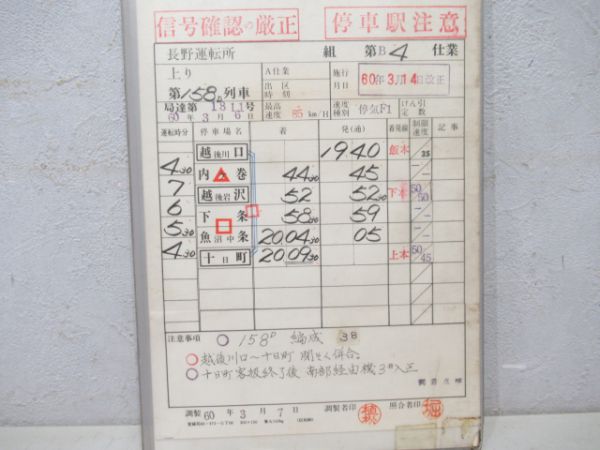 信号確認の厳正 停車駅注意
長野運転所 組 第B4仕業
上り A仕業 施行月日 60年3月14日改正
第158D列車 出区時刻
局達第1811号
60年3月6日 最高速度 85km/H 速度種別 停気F1 けん引定数
運転時分 停車場名 着 発(通) 着発線 制限速度 記事
越後川口 1940 飯本 35
4 30
内ヶ巻 44 30 45
7
越後岩沢 52 52 30 下本 50 50
6
下条 58 30 59
5 30
魚沼中条 20.04 30 05
4 30
十日町 20.09 30 上本 50 45
注意事項 158D 編成 3B
越後川口〜十日町 併合。
十日町客扱終了後 南部経由機3 入区
調製 60年3月7日 調製者印 照合者印 堀